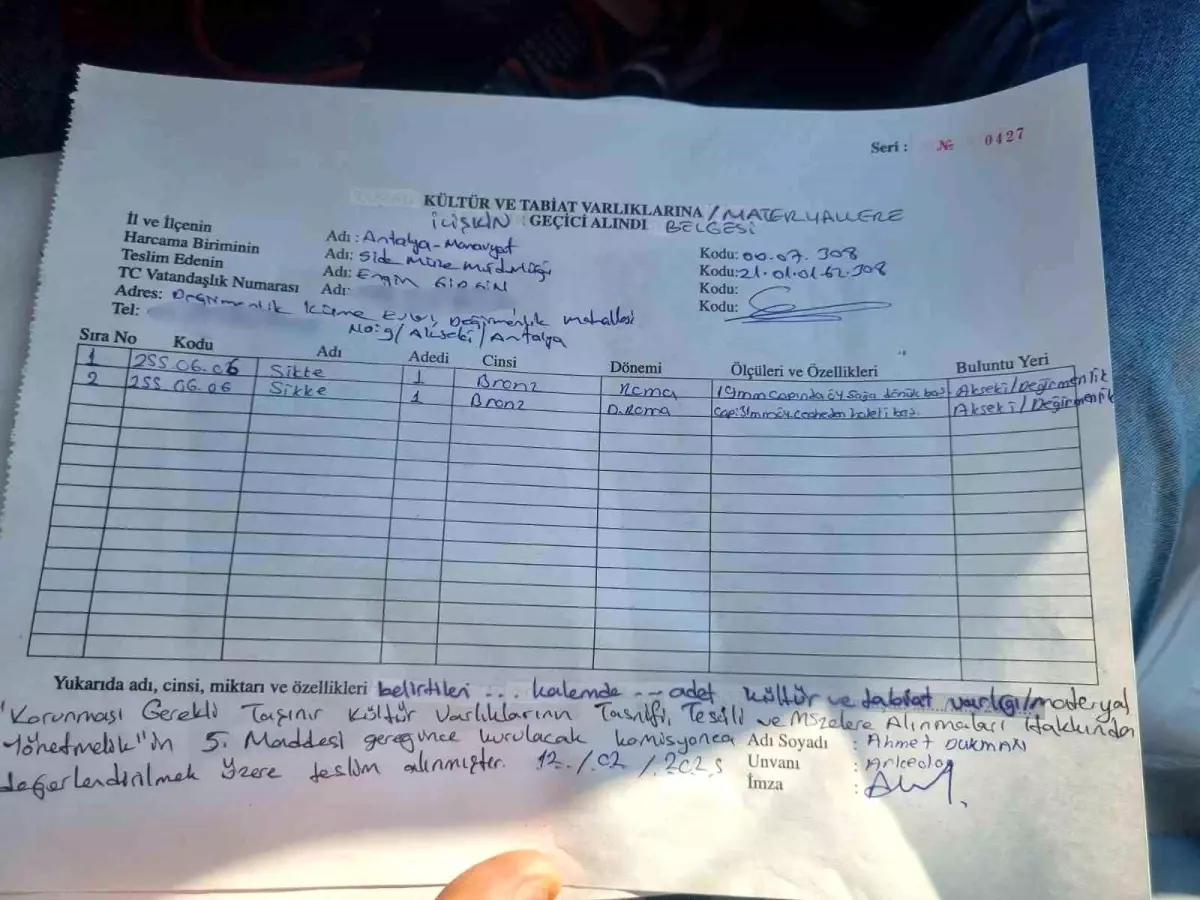 Seri : № 0427
KÜLTÜR VE TABİAT VARLIKLARINA / MATERYALLERE
İLİŞKİN GEÇİCİ ALINDI BELGESİ
İl ve İlçenin Adı : Antalya-Manavgat Kodu: 00.07.308
Harcama Biriminin Adı: Side Müze Müdürlüğü Kodu: 21.01.01.62.308
Teslim Edenin Adı: Engin Kodu:
TC Vatandaşlık Numarası Adı: Kodu:
Adres: Değirmenlik Küme Evleri, Değirmenlik mahallesi
Tel: No:9/Akseki/Antalya
Sıra No Kodu Adı Adedi Cinsi Dönemi Ölçüleri ve Özellikleri Buluntu Yeri
1 255.06.06 Sikke 1 Bronz Roma 19mm çapında öy. sağa dönük baş Akseki/Değirmenlik
2 255.06.06 Sikke 1 Bronz D.Roma çap:31mm öy. cepheden haleli baş. Akseki/Değirmenlik
Yukarıda adı, cinsi, miktarı ve özellikleri belirtilen ... kalemde ... adet kültür ve tabiat varlığı/materyal
"Korunması Gerekli Taşınır Kültür Varlıklarının Tasnifi, Tescili ve Müzelere Alınmaları Hakkında
Yönetmelik"in 5. Maddesi gereğince kurulacak komisyonca
değerlendirilmek üzere teslim alınmıştır. 12./02/2025
Adı Soyadı : Ahmet DUKMAN
Unvanı : Arkeolog
İmza :